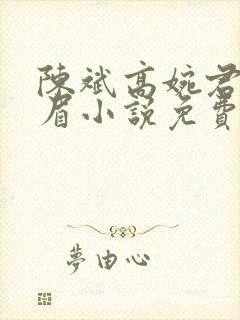 陳斌高婉君
眉小說免費
夢由心